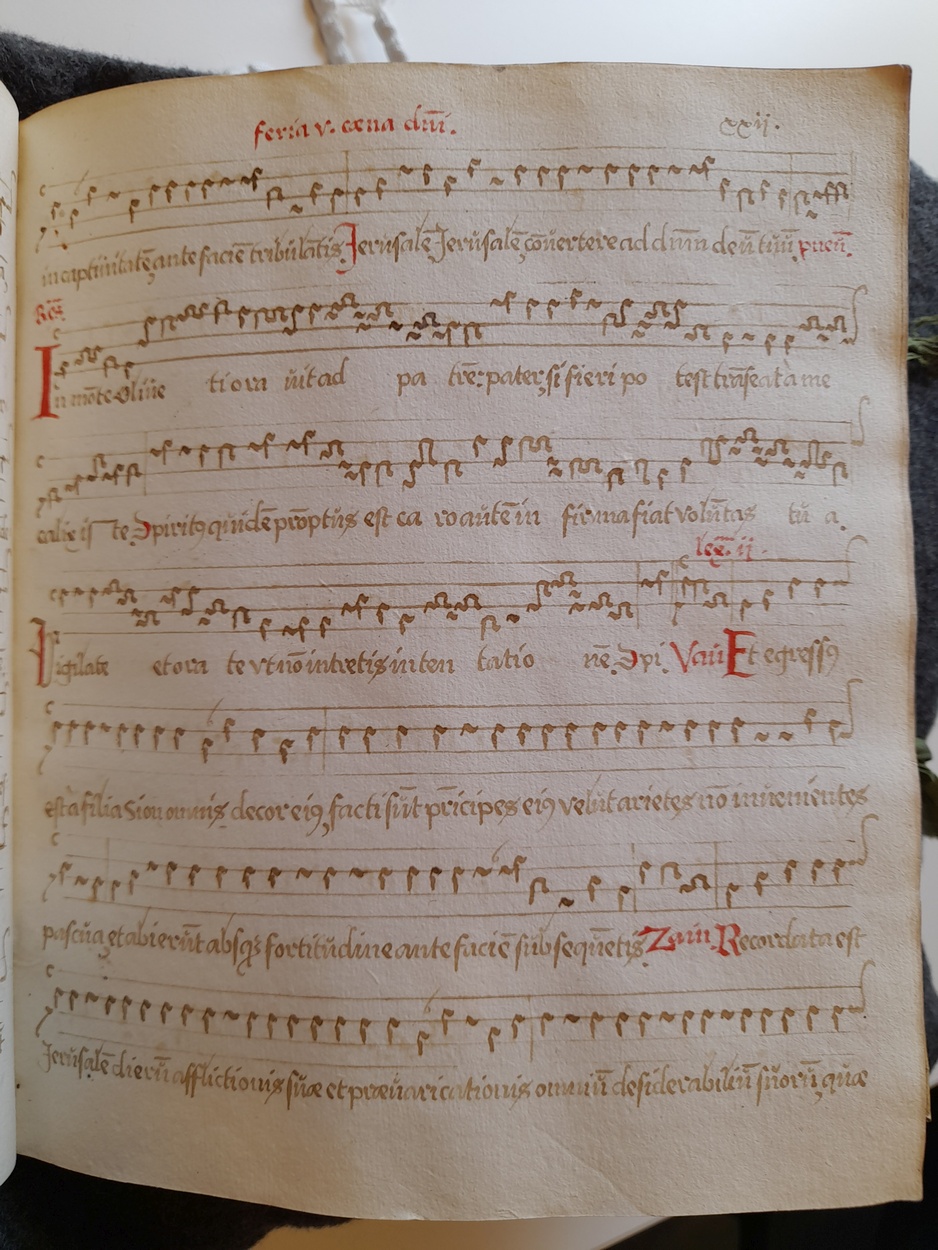 feria v. cœna dn̄i.
xxij.
in captiuitatē, ante faciē tribulātis. Jerusalē Jerusalē, cōuertere ad dnm̄ deū tuū.
Res̄.
In mōte Oliue ti ora uit ad pa trē: pater, si fieri po test trāseat a me
calix is te. Spiritꝯ quidē prōptus est ca ro autē in firma fiat voluntas tu a.
lec̄. ij.
Vigilate et ora te vt nō intretis in ten tatio nē. Spi. Vau Et egressꝯ
est a filia Sion omnis decor eiꝯ, facti sūt prīcipes eiꝯ velut arietes nō inuenientes
pascua, et abierūt absqꝫ fortitudine ante faciē subsequētis. Zain. Recordata est
Jerusalē dierū afflictionis suæ et præuaricationis omniū desiderabiliū suorū, quæ